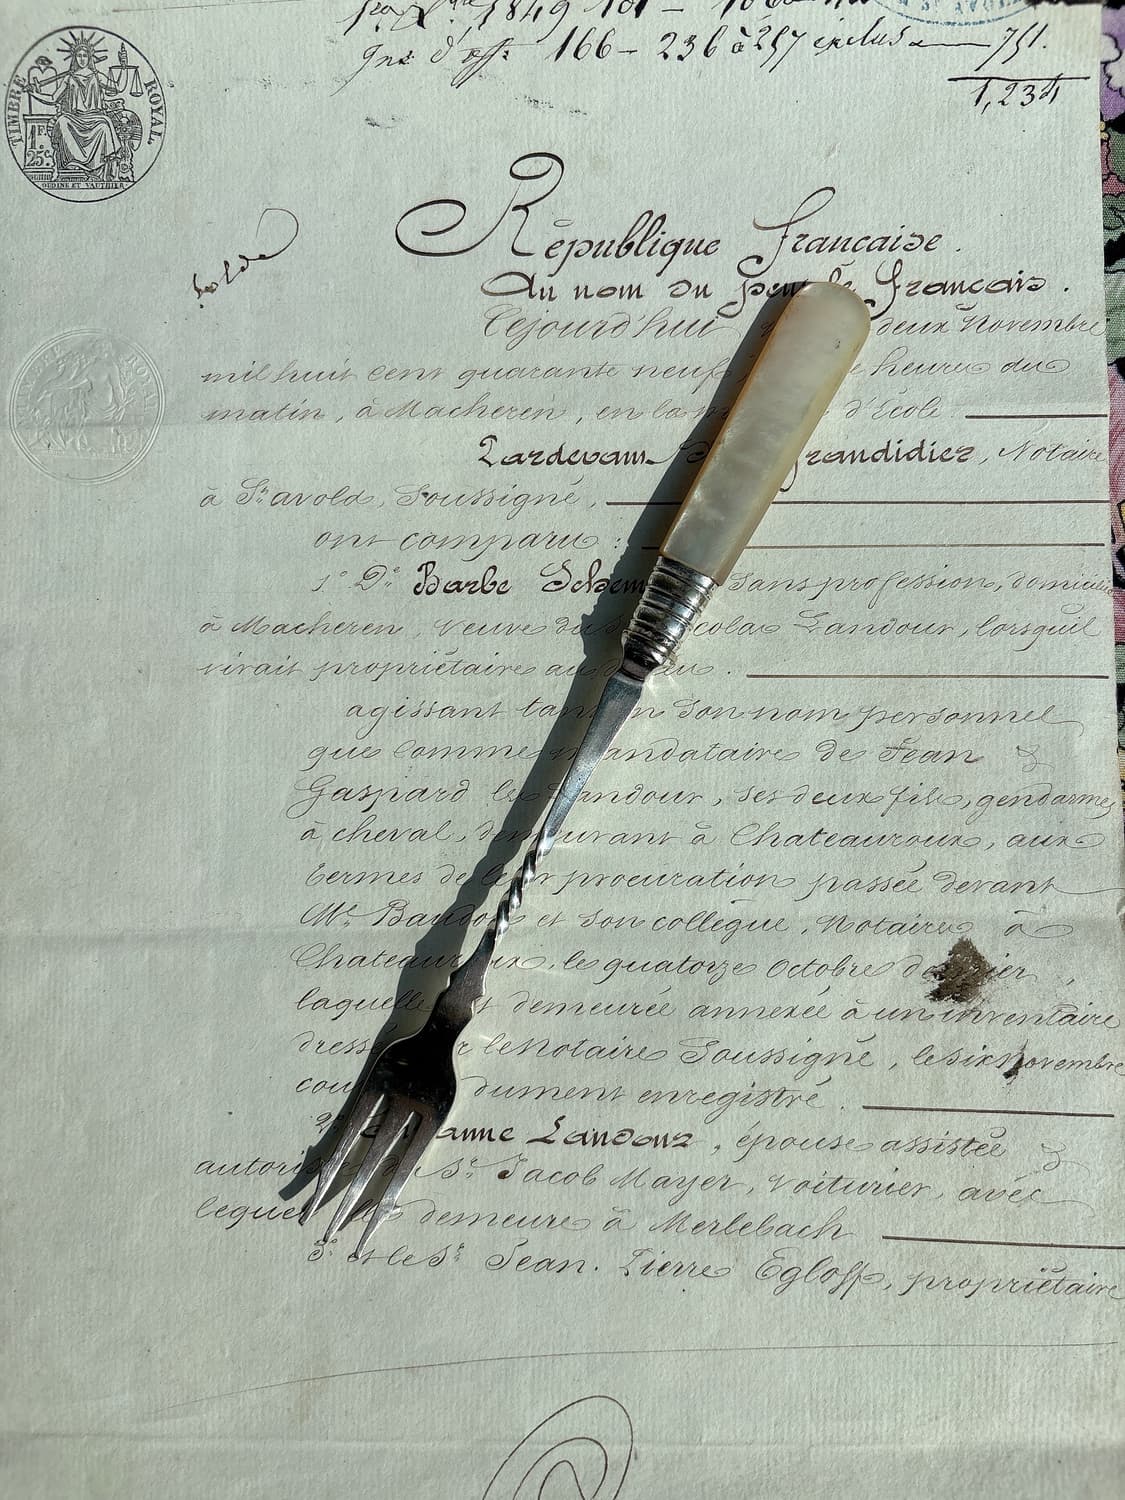 1849 101 —
d'off. 166 — 236 à 257 inclus — 751.
1,234
TIMBRE ROYAL.
1F. 25c.
OUDINÉ ET VAUTHIER
solde
République française.
Au nom du peuple français.
Cejourd'hui deux Novembre
mil huit cent quarante neuf, heures du
matin, à Macheren, en la d'École.
Grandidier, Notaire
à St. avold, Soussigné,
ont comparu :
1° De. Barbe Sans profession, domiciliée
à Macheren veuve du Landour, lorsqu'il
vivait propriétaire au
agissant tant en son nom personnel
que comme mandataire de Jean &
Gaspard les Landour, ses deux fils, gendarmes
à cheval, demeurant à Chateauroux, aux
termes de leur procuration passée devant
Me. Baudo et son collègue, Notaires à
Chateauroux, le quatorze Octobre dernier,
laquelle est demeurée annexée à un inventaire
dressé par le Notaire Soussigné, le six Novembre
dument enregistré.
anne Landour, épouse assistée &
autorisée du Sr. Jacob Mayer, voiturier, avec
lequel elle demeure à Merlebach
3° et le Sr. Jean-Pierre Egloff, propriétaire